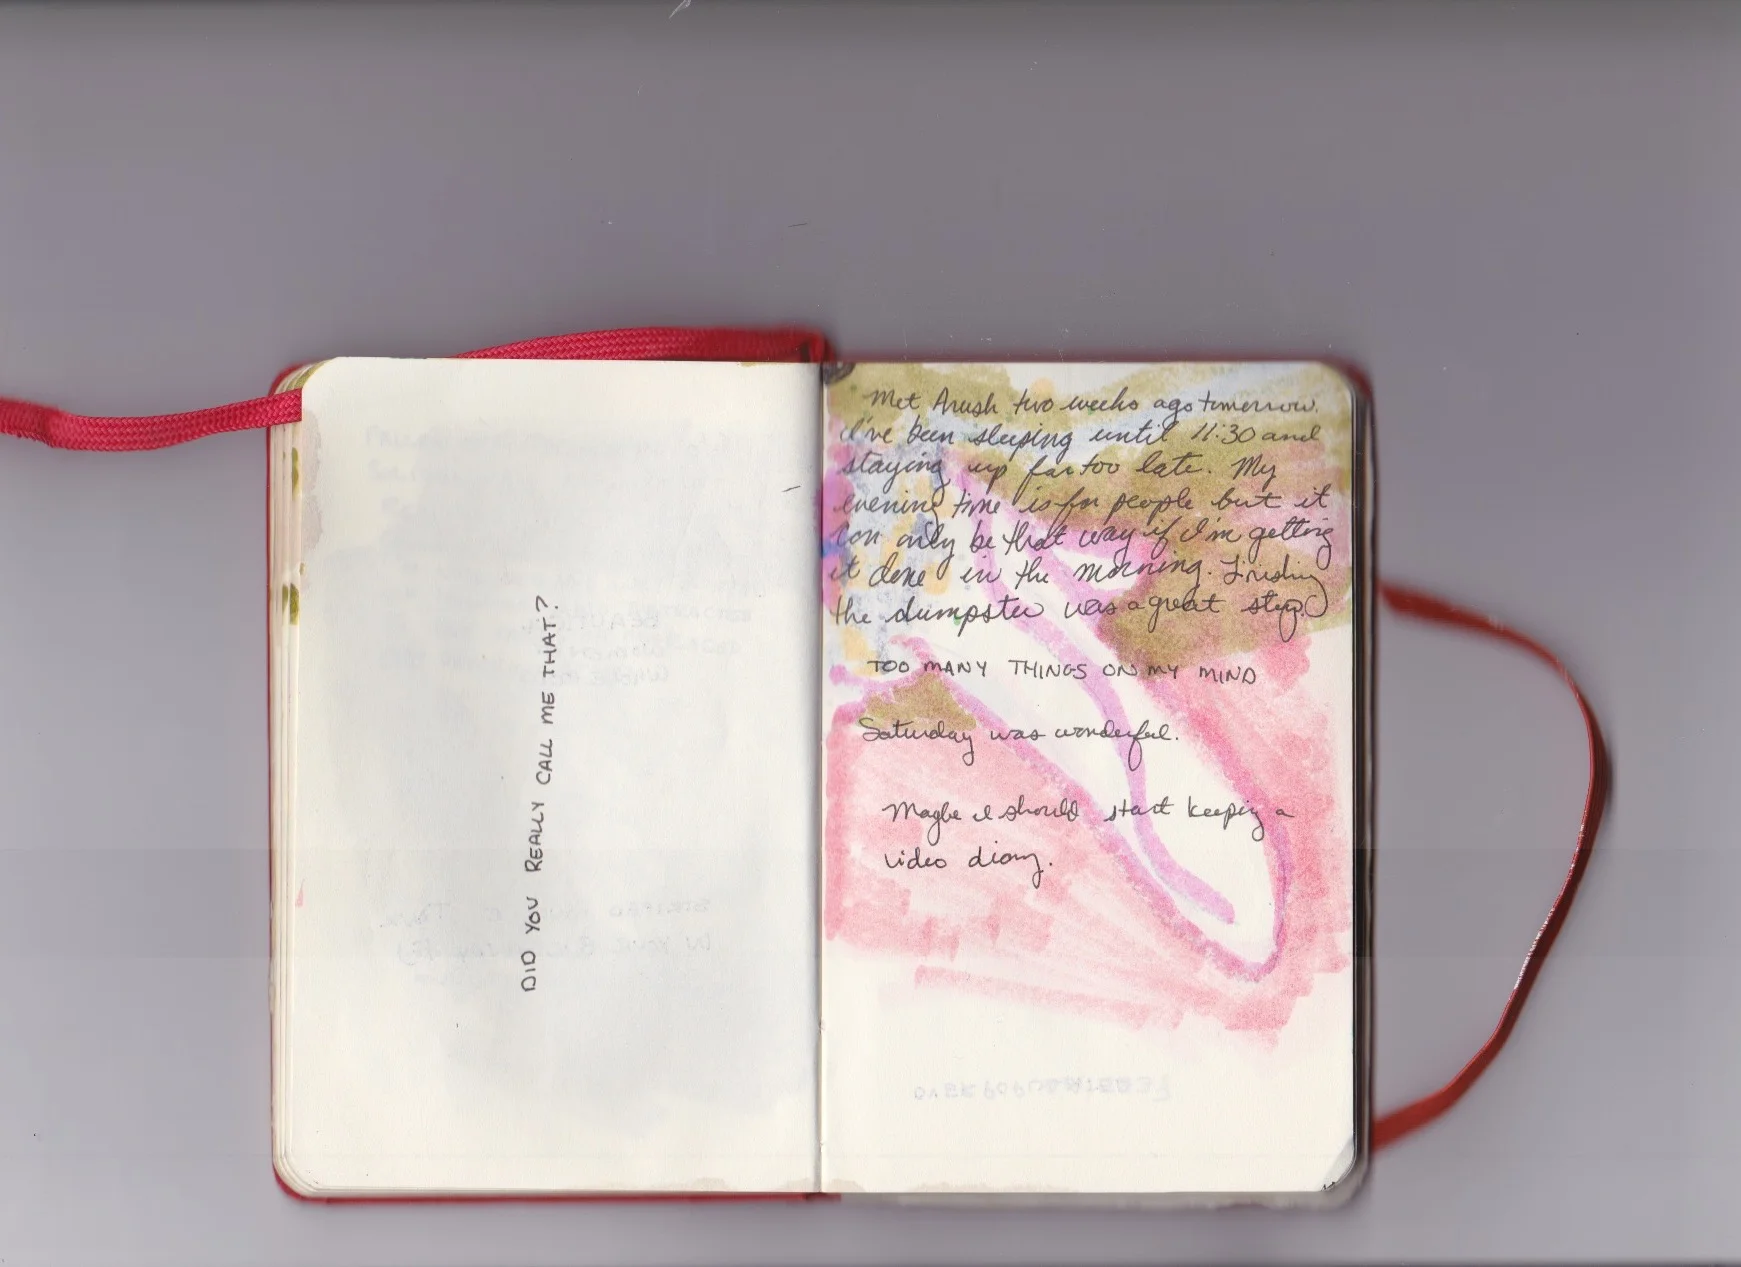 DID YOU REALLY CALL ME THAT?
Met Arush two weeks ago tomorrow.
I've been sleeping until 11:30 and
staying up far too late. My
evening time is for people but it
can only be that way if I'm getting
it done in the morning.
the dumpster was a great step.
TOO MANY THINGS ON MY MIND
Saturday was wonderful.
Maybe I should start keeping a
video diary.